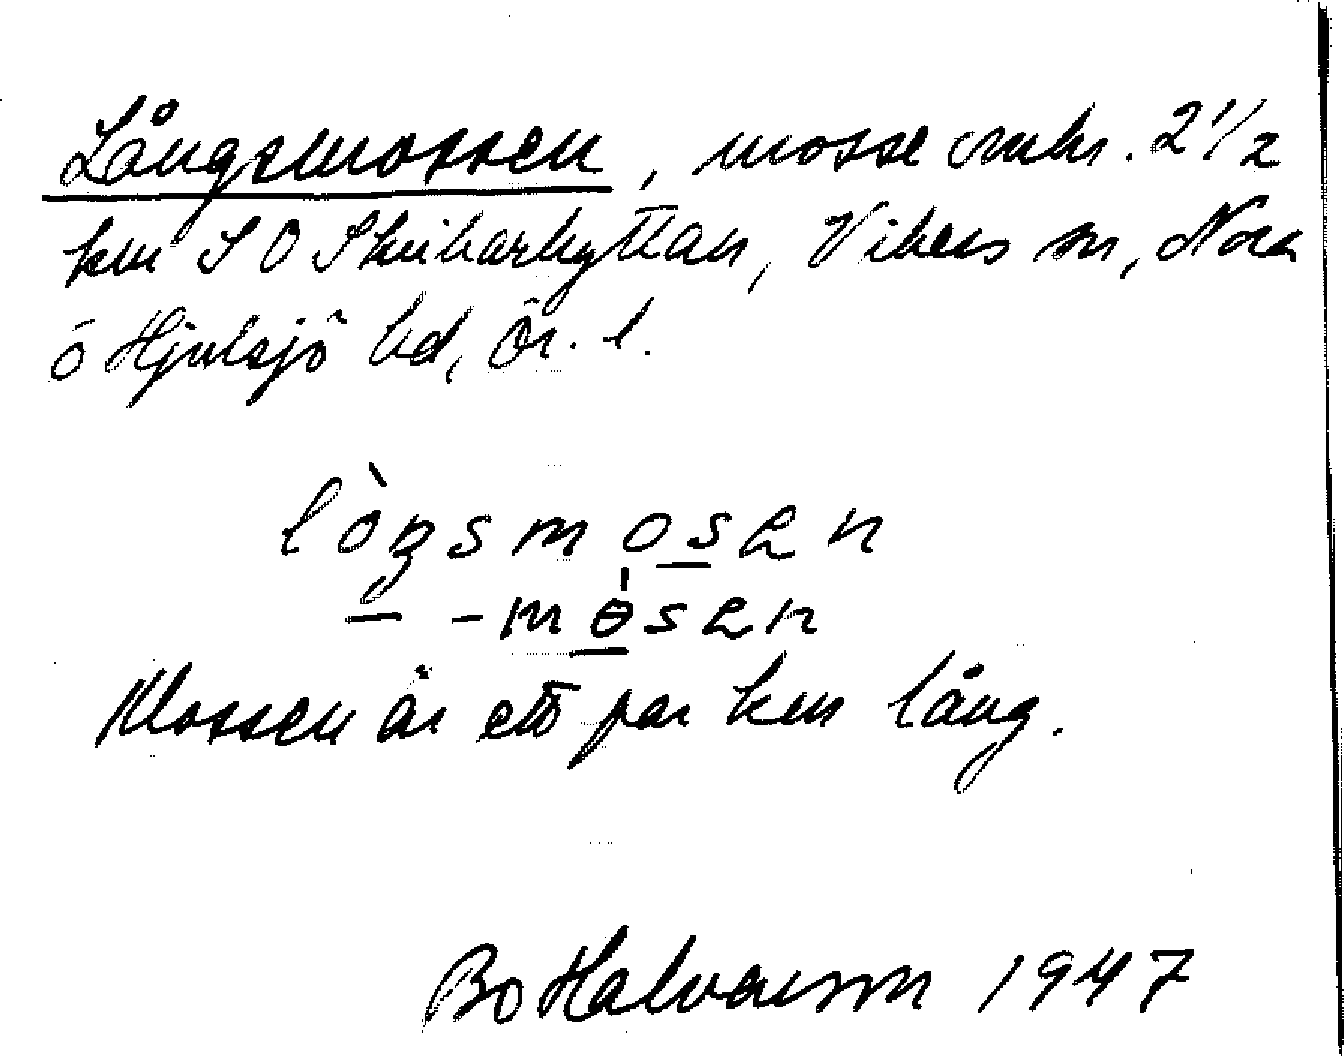 Långsmossen, mosse omkr. 2 1/2
km SO Skrikarhyttan, Vikers sn, Nora
o Hjulsjö bd, Ör. l.
lòŋsmosen
– -mòsen
Mossen är ett par km lång.
Bo Halvarson 1947